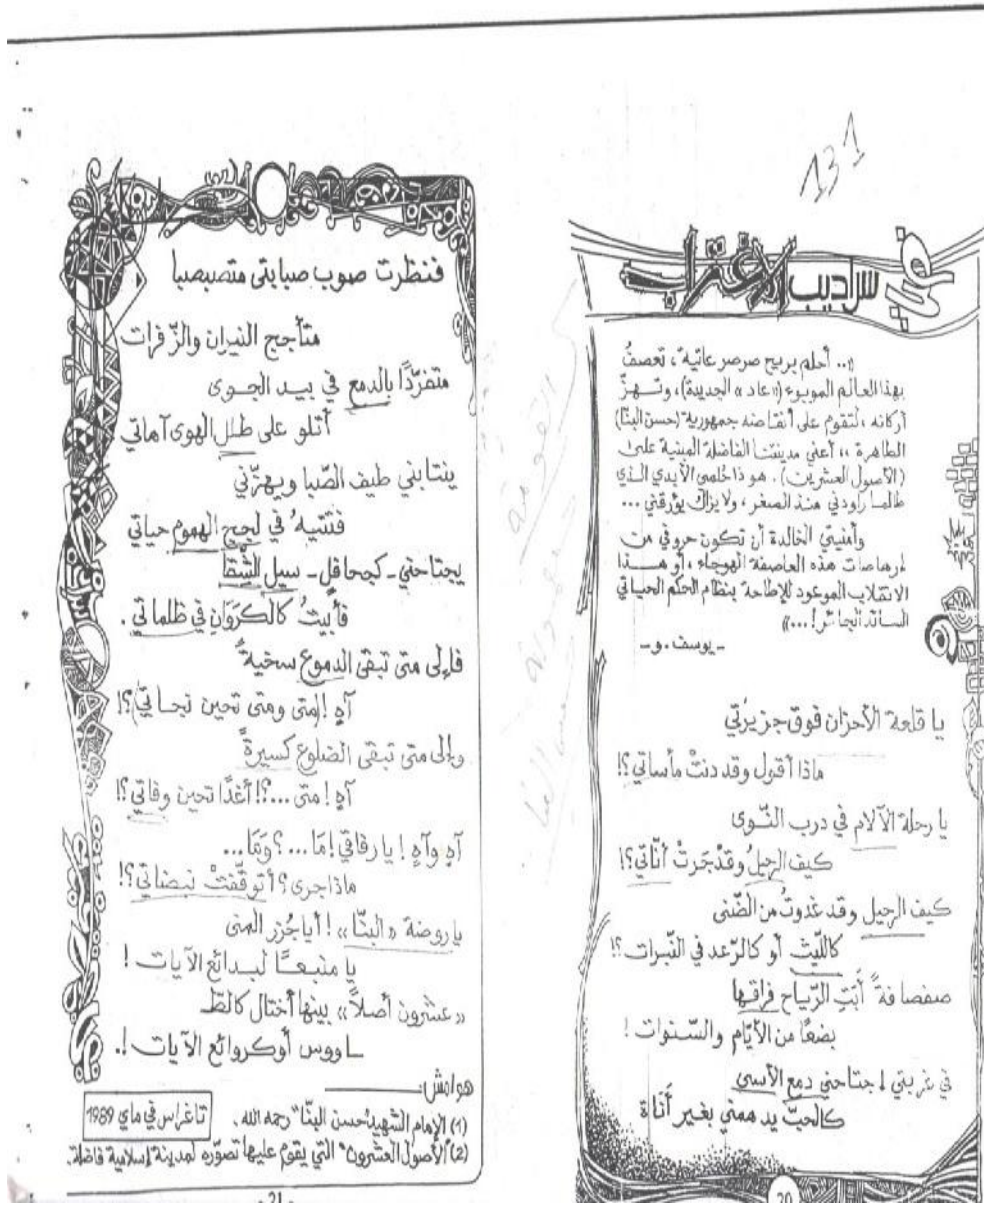 131
في سراديب الاغتراب
«.. أحلم بريح صرصر عاتية، تعصفُ
بهذا العالم الموبوء («عاد» الجديدة)، وتهزّ
أركانه، لتقوم على أنقاضه جمهورية (حسن البنّا)
الطاهرة،، أعني مدينتنا الفاضلة المبنية على
(الأصول العشرين). هو ذا حُلمي الأبدي الذي
طالما راودني منذ الصغر، ولا يزال يؤرقني ...
وأمنيتي الخالدة أن تكون حروفي من
إرهاصات هذه العاصفة الهوجاء، أو هذا
الانقلاب الموعود للإطاحة بنظام الحكم الحياتي
السائد الجائر!...»
- يوسف.و -
يا قلعة الأحزان فوق جزيرتي
ماذا أقول وقد دنتْ مأساتي؟!
يا رحلة الآلام في درب النّوى
كيف الرحيلُ وقد جَرتْ أنّاتي؟!
كيف الرحيل وقد غدوتُ من الضّنى
كاللّيث أو كالرّعد في النّبرات؟!
صفصافةً أبَتِ الرّياح فراقها
بضعًا من الأيّام والسّنوات!
في غربتي اجتاحني دمع الأسى
كالحبّ يدهمني بغير أناة
20
فنظرت صوب صبابتي متصبصبا
متأجج النيران والزّفرات
متفرّدًا بالدمع في بيد الجوى
أتلو على طلل الهوى آهاتي
ينتابني طيف الصّبا ويهزّني
فتتيهُ في لجج الهموم حياتي
يجتاحني - كجحافل - سيل الشقا
فأبيتُ كالكَرَوَانِ في ظلماتي.
فإلى متى تبقى الدموع سخيةً
آهِ! (متى ومتى تحين نجاتي)؟!
وإلى متى تبقى الضلوع كسيرةً
آهِ! متى ...؟! أغدًا تحين وفاتي؟!
آهِ وآهِ! يا رفاقي! مَا...؟ وَمَا...
ماذا جرى؟ أتوقّفتْ نبضاتي؟!
يا روضة «البنّا»! أيا جُزر المنى
يا منبعًا لبدائع الآيات!
«عشرون أصلاً» بينها أختال كالطّـ
ـاووس أو كروائع الآيات!.
هوامش:
(1) الإمام الشّهيد حسن البنّا" رحمه الله.
(2) "الأصول العشرون" التي يقوم عليها تصوّره لمدينة إسلامية فاضلة.
تاغراس في ماي 1989
21